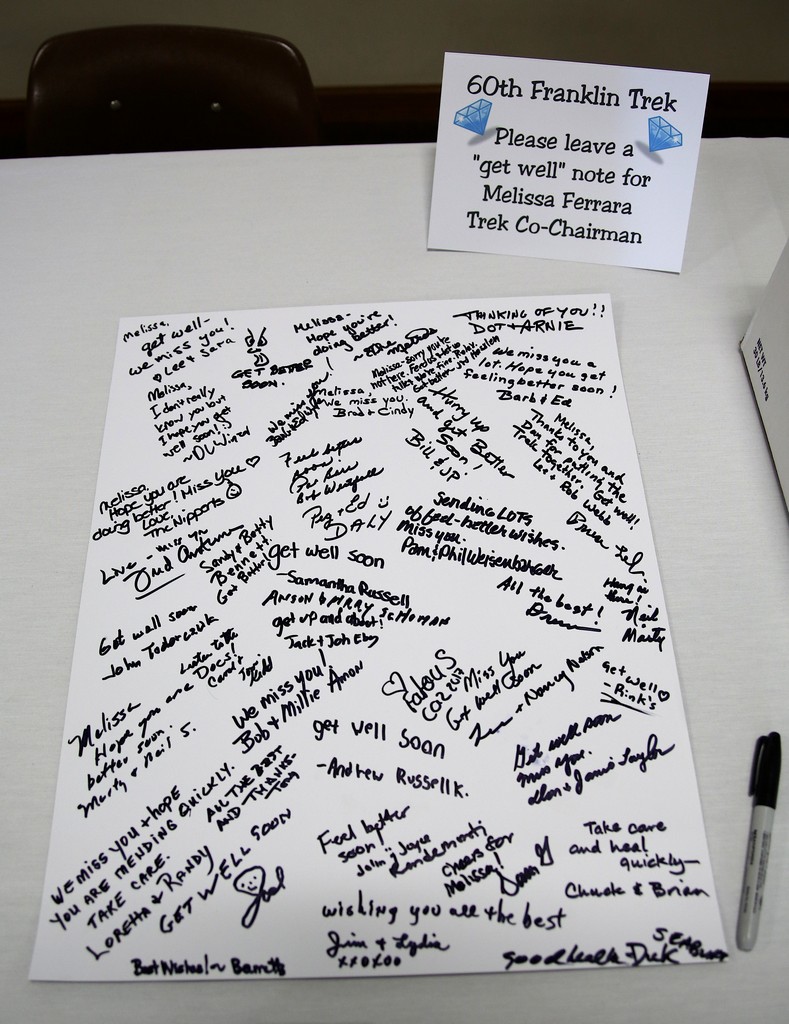 60th Franklin Trek
Please leave a
"get well" note for
Melissa Ferrara
Trek Co-Chairman
Melissa,
get well-
we miss you!
♡ Lee & Sara
GET BETTER
SOON.
Melissa-
Hope you're
doing better!
THINKING OF YOU!!
DOT & ARNIE
Melissa-sorry you're
not here.
We miss you a
lot. Hope you get
feeling better soon!
Barb & Ed
Melissa,
I don't really
know you but
I hope you get
well soon! :)
We miss you!
Melissa,
We miss you.
Brad & Cindy
Hurry up
and get Better
Soon!
Bill & JP
Melissa,
Thanks to you and
Don for putting the
Trek together. Get well!
Lee & Bob Webb
Melissa.
Hope you are
doing better! Miss you ♡
Love,
The Nipperts
Feel better
soon!
Peg & Ed
DALY
Sending LOTS
of feel-better wishes.
Miss you.
Pam & Phil Weisenburger
Sandy & Betty
Bennett.
Get Better
get well soon
-Samantha Russell
ANSON & MARY SCHOMAN
get up and about!
All the best!
Hang in
there!
Neil
&
Marty
Get well soon
We miss you!
Bob & Millie Amon
♡ Palous
CO2 2017
Miss You
Get Well Soon
Get Well ♡
-Rink's
Melissa
Hope you are
better soon.
Marty & Neil S.
get well soon
-Andrew Russell K.
Get well soon
miss you.
Alan & Janis Taylor
ALL THE BEST
AND THANKS-
WE MISS YOU & HOPE
YOU ARE MENDING QUICKLY.
TAKE CARE.
LORETTA & RANDY
GET WELL SOON
Feel better
soon!
John & Joyce
Cheers for
Melissa!
Take care
and heal
quickly-
Chuck & Brian
wishing you all the best
Jim & Lydia
xxoxoo
Best Wishes! ~ Barnetts
Good health Dick